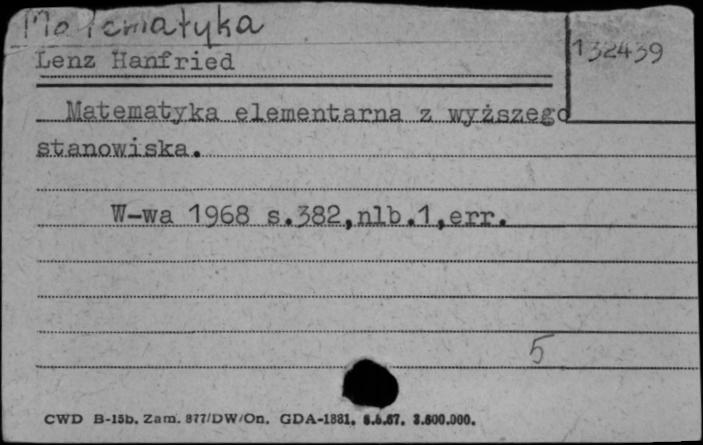 Matematyka
132439
Lenz Hanfried
Matematyka elementarna z wyższego
stanowiska.
W-wa 1968 s.382,nlb.1,err.
5
CWD B-15b. Zam. 877/DW/On. GDA-1881. 6.6.67. 3.600.000.